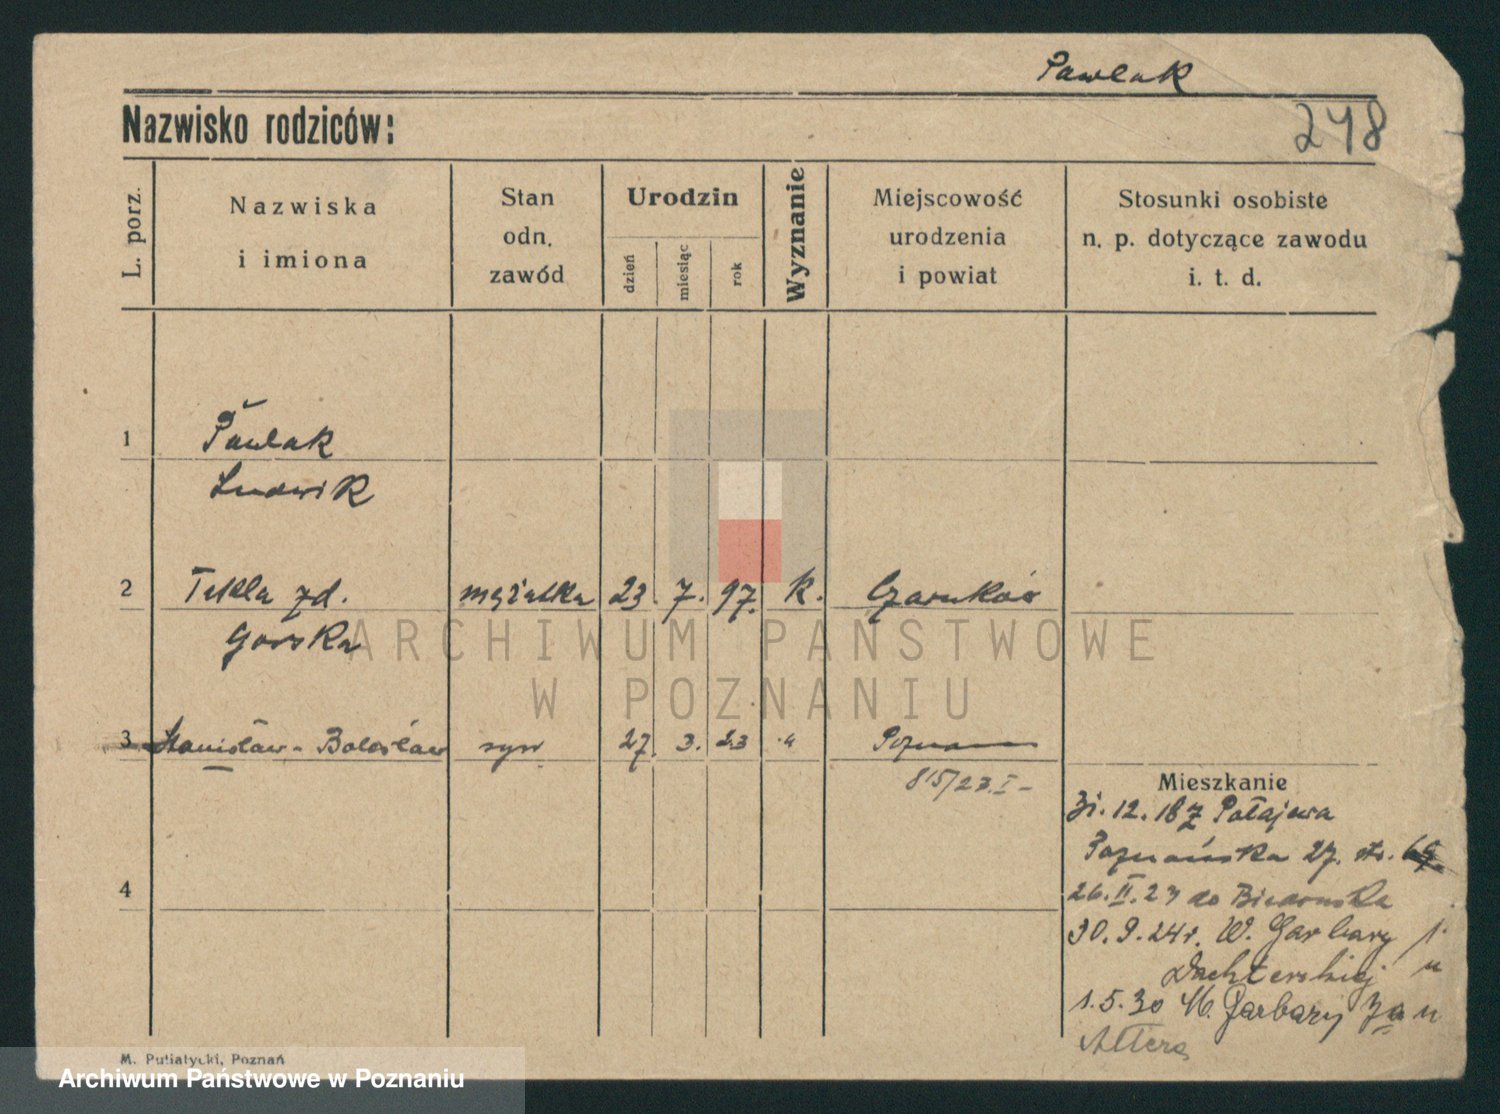 Pawlak
Nazwisko rodziców:
248
L. porz.
Nazwiska
i imiona
Stan
odn.
zawód
Urodzin
dzień
miesiąc
rok
Wyznanie
Miejscowość
urodzenia
i powiat
Stosunki osobiste
n. p. dotyczące zawodu
i. t. d.
1 Pawlak
Ludwik
2 Tekla zd. mężatka 23. 7. 97. k. Czarnków
Górska
ARCHIWUM PAŃSTWOWE
W POZNANIU
3 Stanisław-Bolesław syn 27. 3. 23 " Poznań
815/23.I-
Mieszkanie
31.12.18 z Połajewa
Poznańska 27. str.
4
26.II.23 do
30.9.24r. W. Garbary 1.
u
1.5.30 M. Garbary 7a u
Altera
M. Putiatycki, Poznań
Archiwum Państwowe w Poznaniu